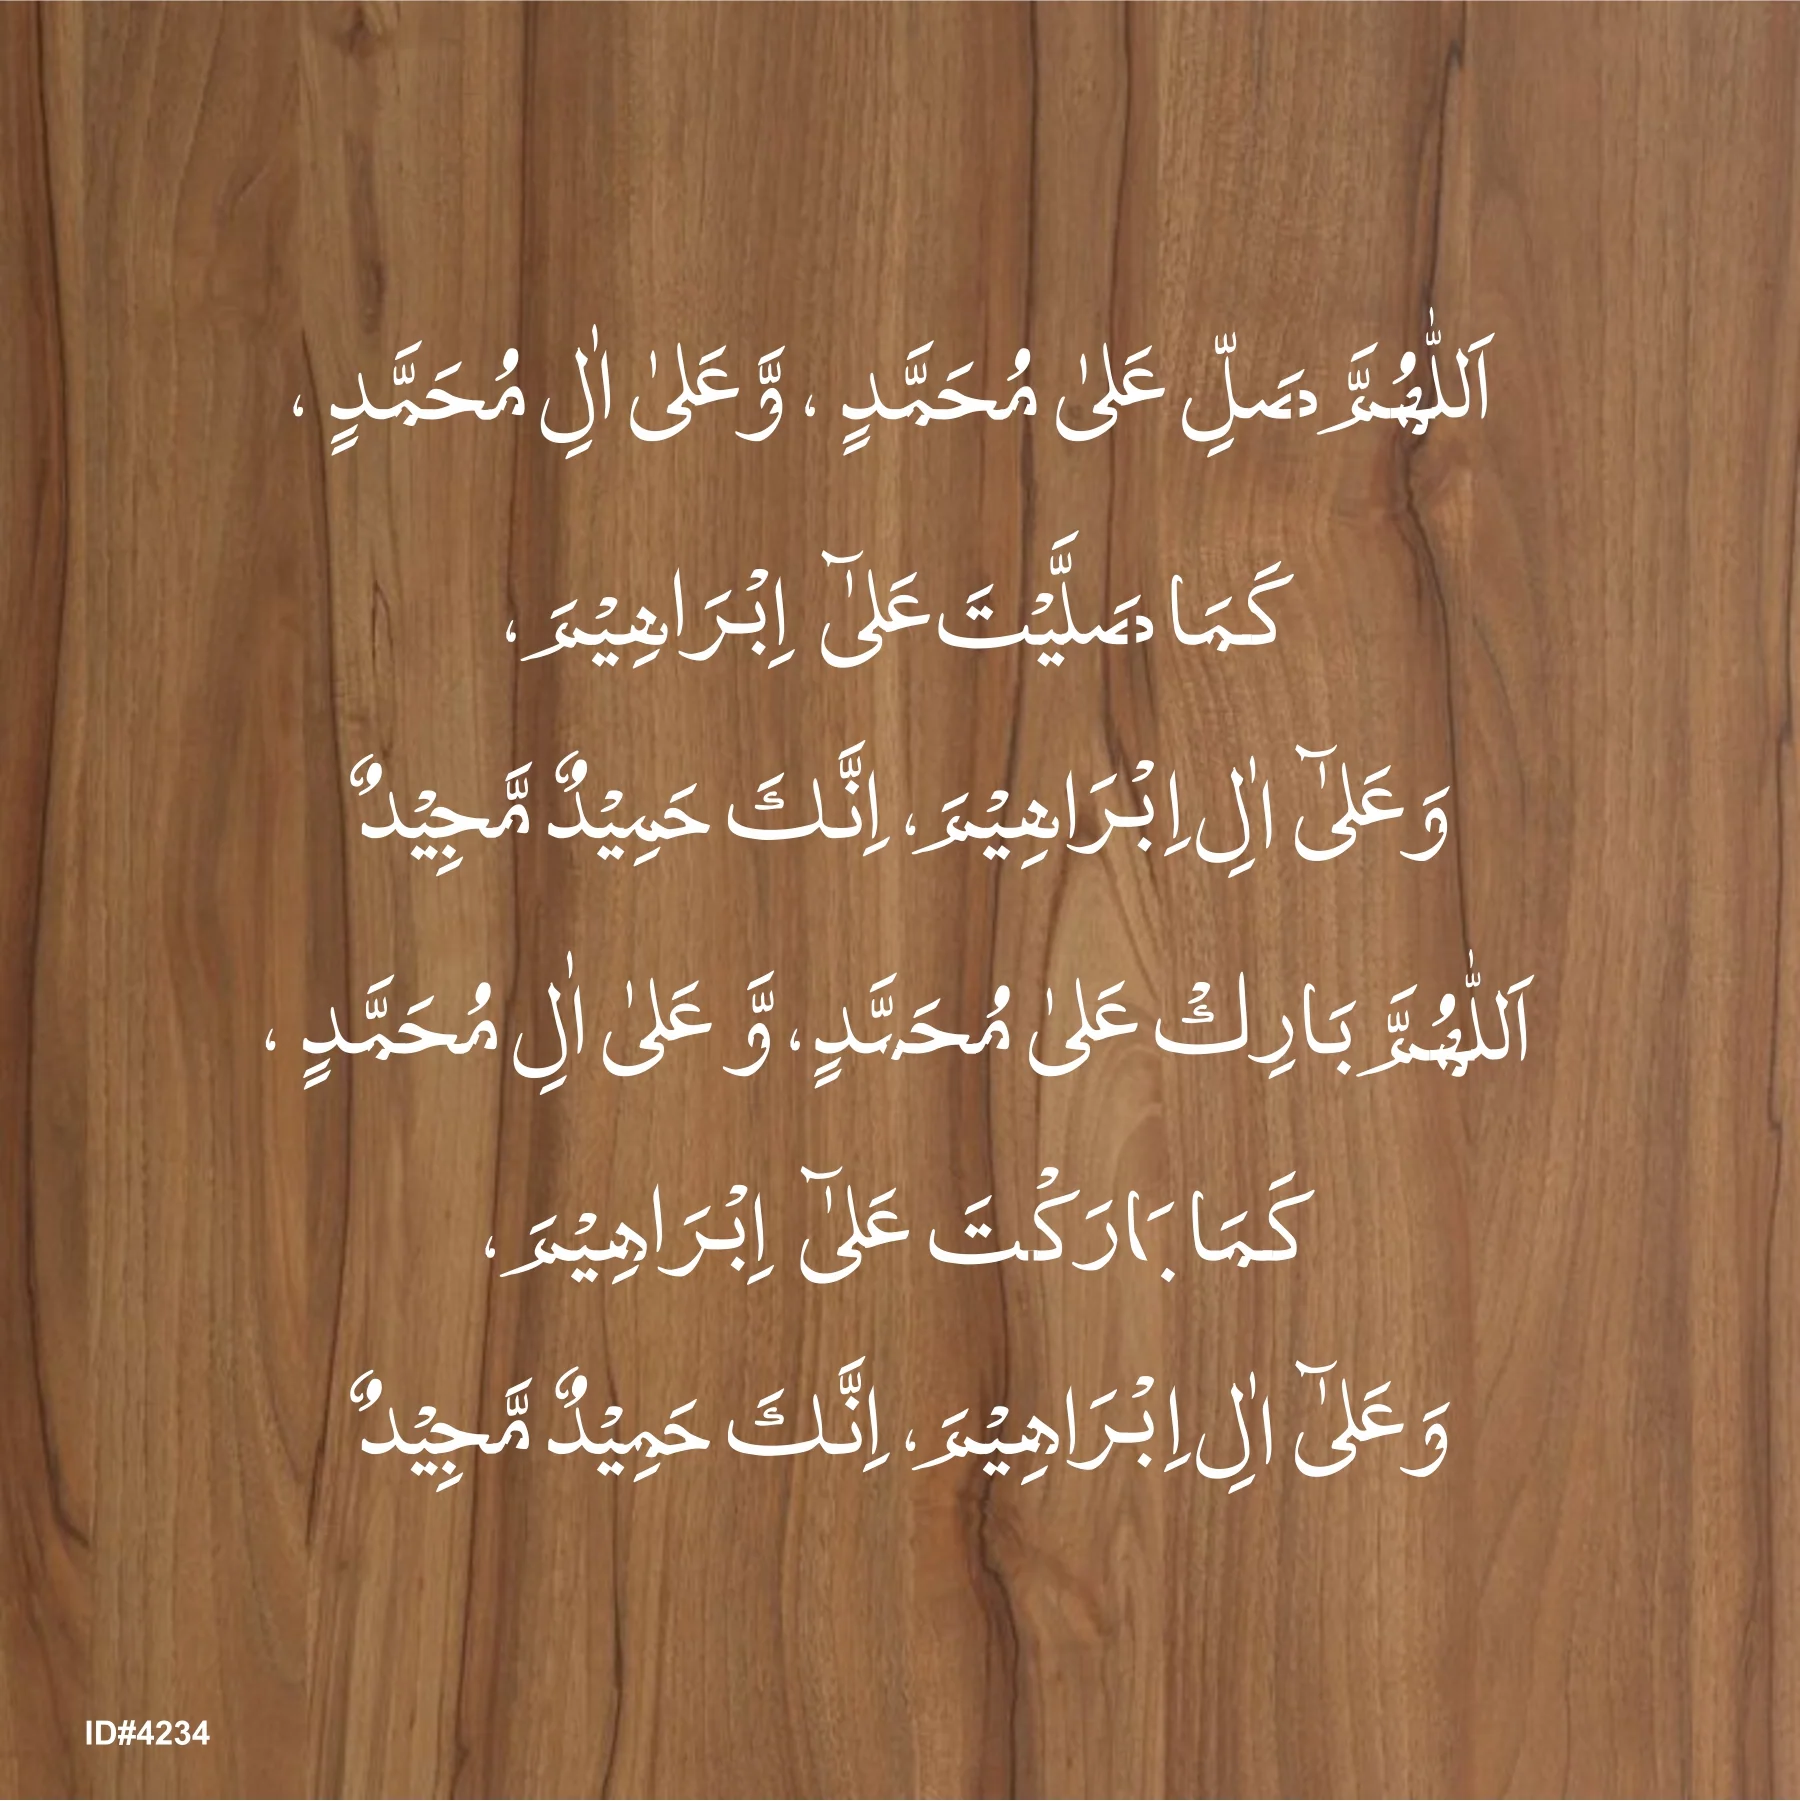 اَللّٰهُمَّ صَلِّ عَلىٰ مُحَمَّدٍ ، وَّعَلىٰ اٰلِ مُحَمَّدٍ ،
كَمَا صَلَّيْتَ عَلىٰٓ اِبْرَاهِيْمَ ،
وَعَلىٰٓ اٰلِ اِبْرَاهِيْمَ ، اِنَّكَ حَمِيْدٌ مَّجِيْدٌ
اَللّٰهُمَّ بَارِكْ عَلىٰ مُحَمَّدٍ ، وَّ عَلىٰ اٰلِ مُحَمَّدٍ ،
كَمَا بَارَكْتَ عَلىٰٓ اِبْرَاهِيْمَ ،
وَعَلىٰٓ اٰلِ اِبْرَاهِيْمَ ، اِنَّكَ حَمِيْدٌ مَّجِيْدٌ
ID#4234